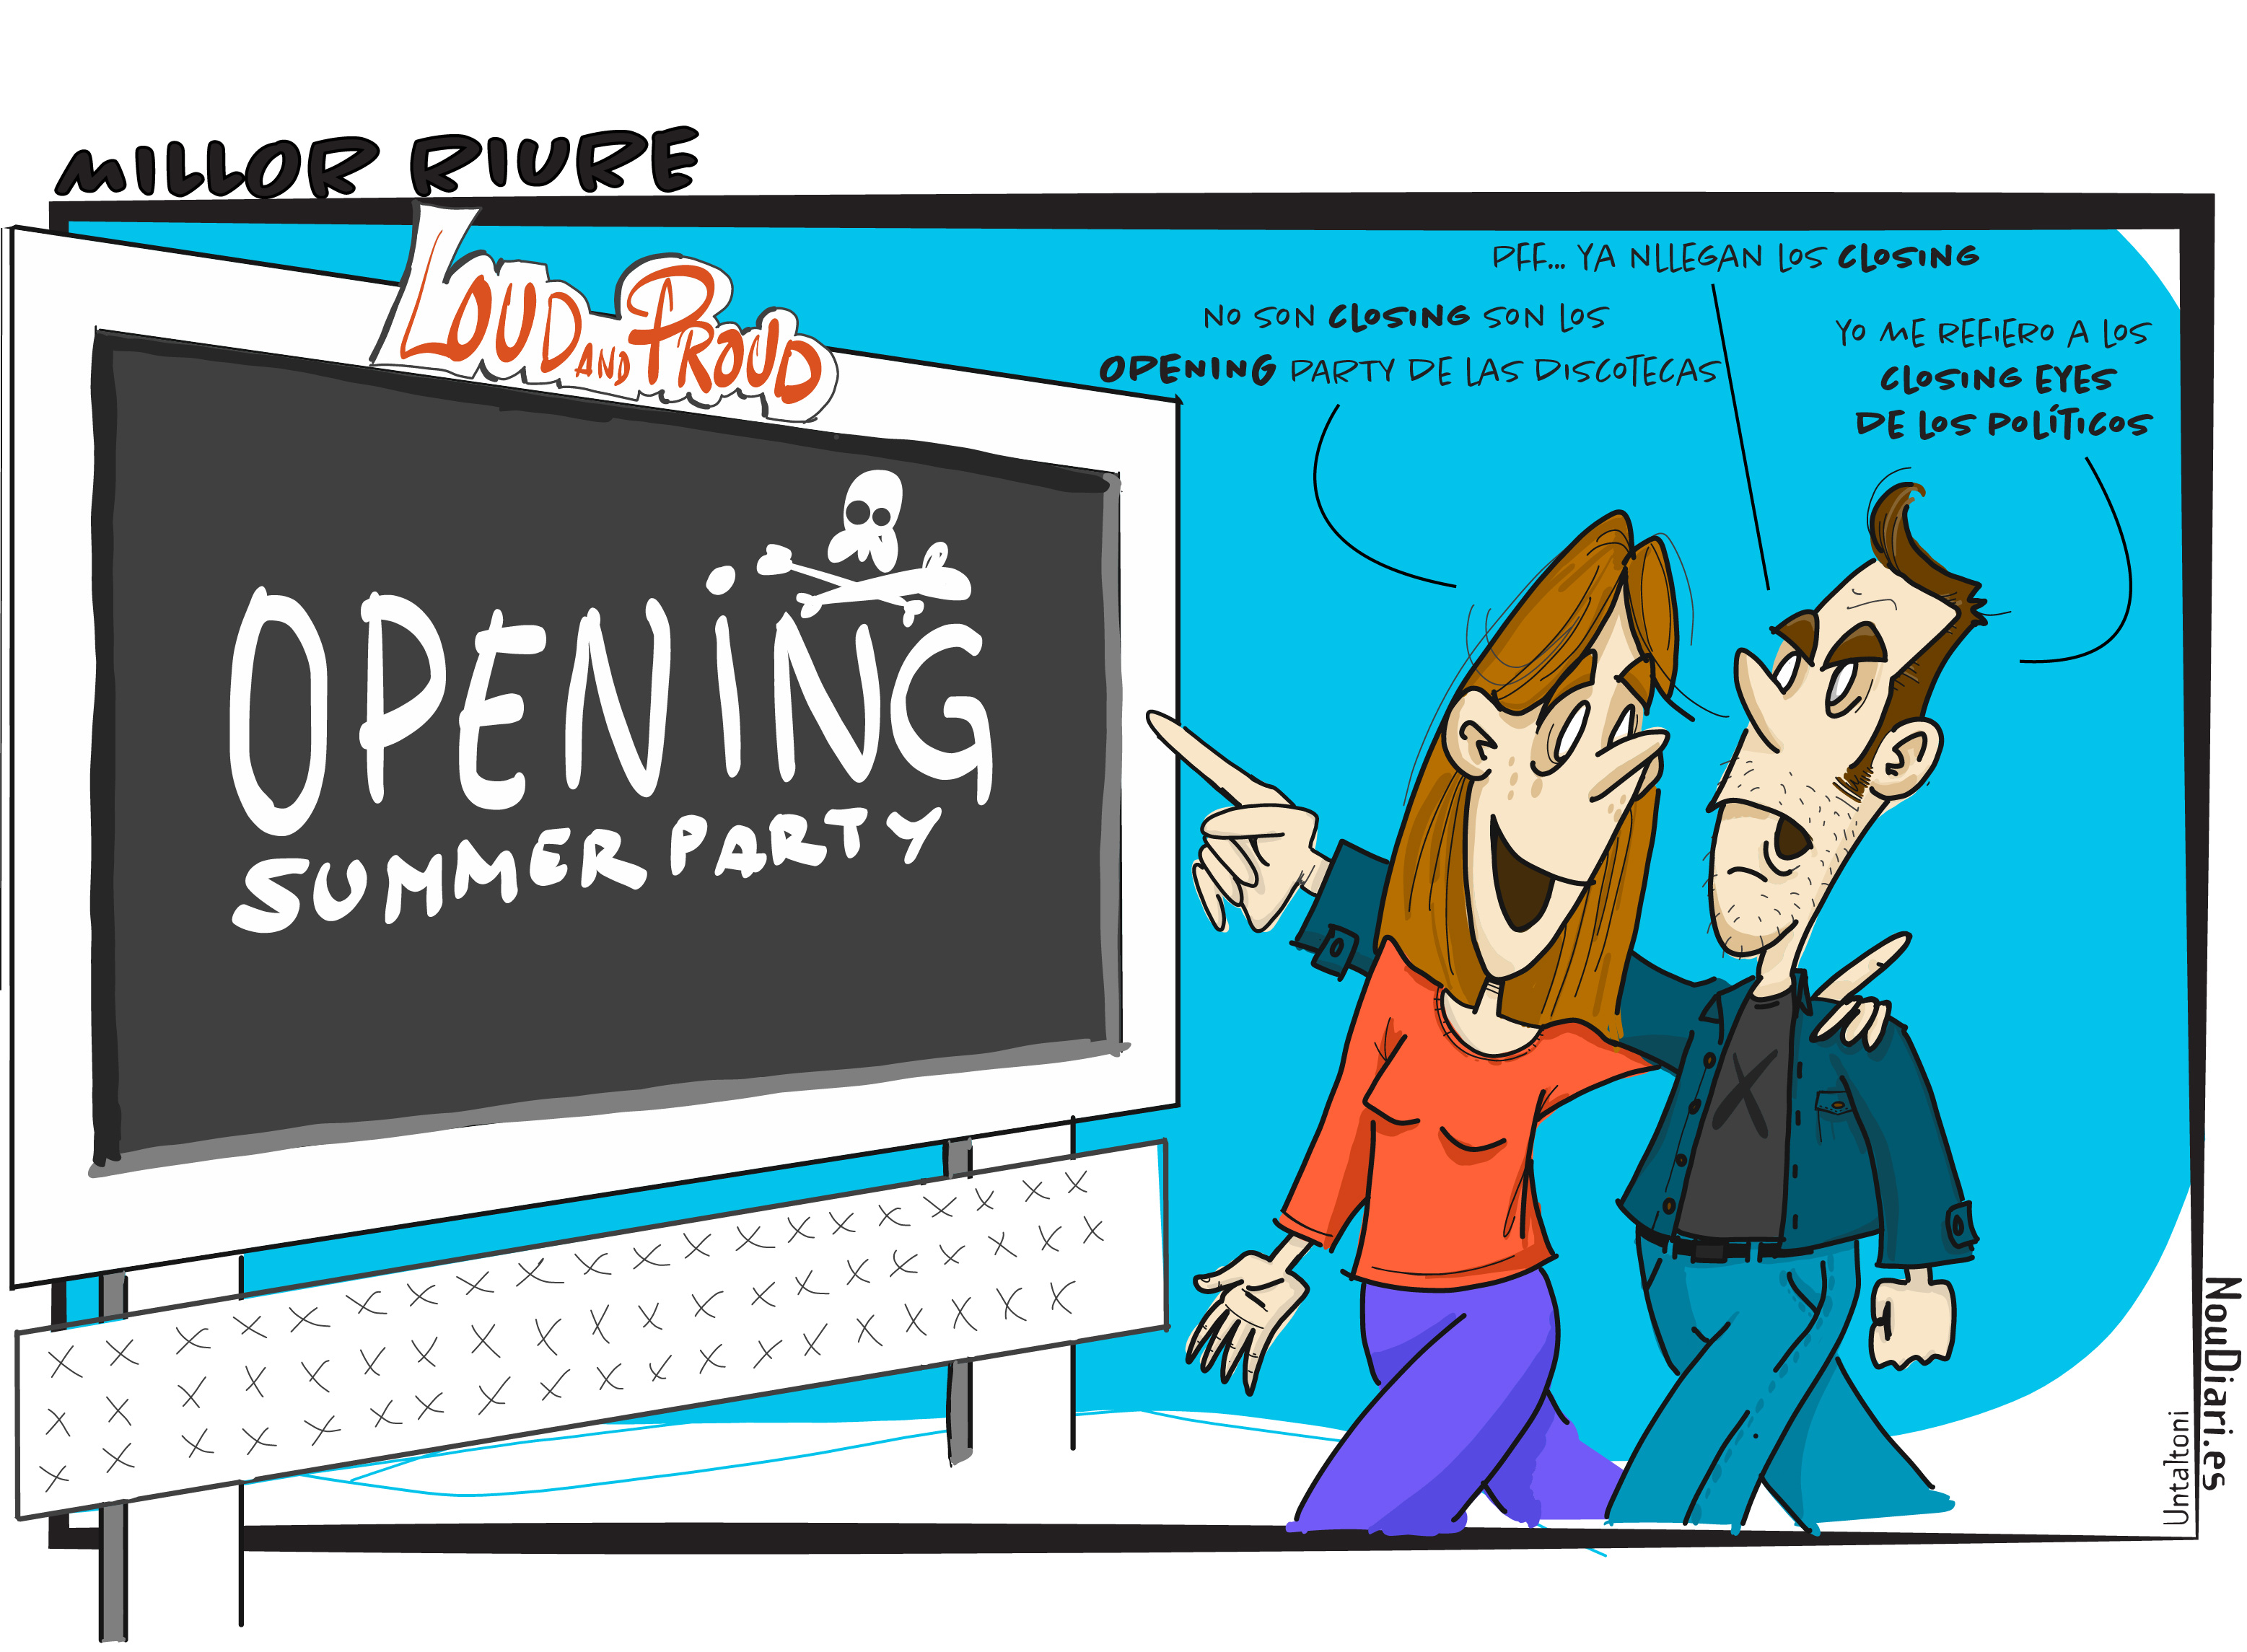 MILLOR RIURE
LOUD AND PROUD
OPENiNG
SUMMER PARTY
PFF... YA NLLEGAN LOS CLOSING
NO SON CLOSING SON LOS
OPENING PARTY DE LAS DISCOTECAS
YO ME REFIERO A LOS
CLOSING EYES
DE LOS POLÍTICOS
NouDiari.es
Untaltoni